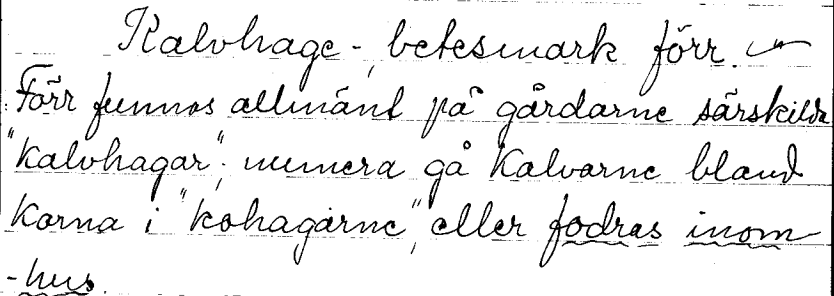 Kalvhage -, betesmark förr.
Förr funnos allmänt på gårdarne särskilda
"kalvhagar"; numera gå kalvarne bland
korna i "kohagarne", eller fodras inom-
-hus.